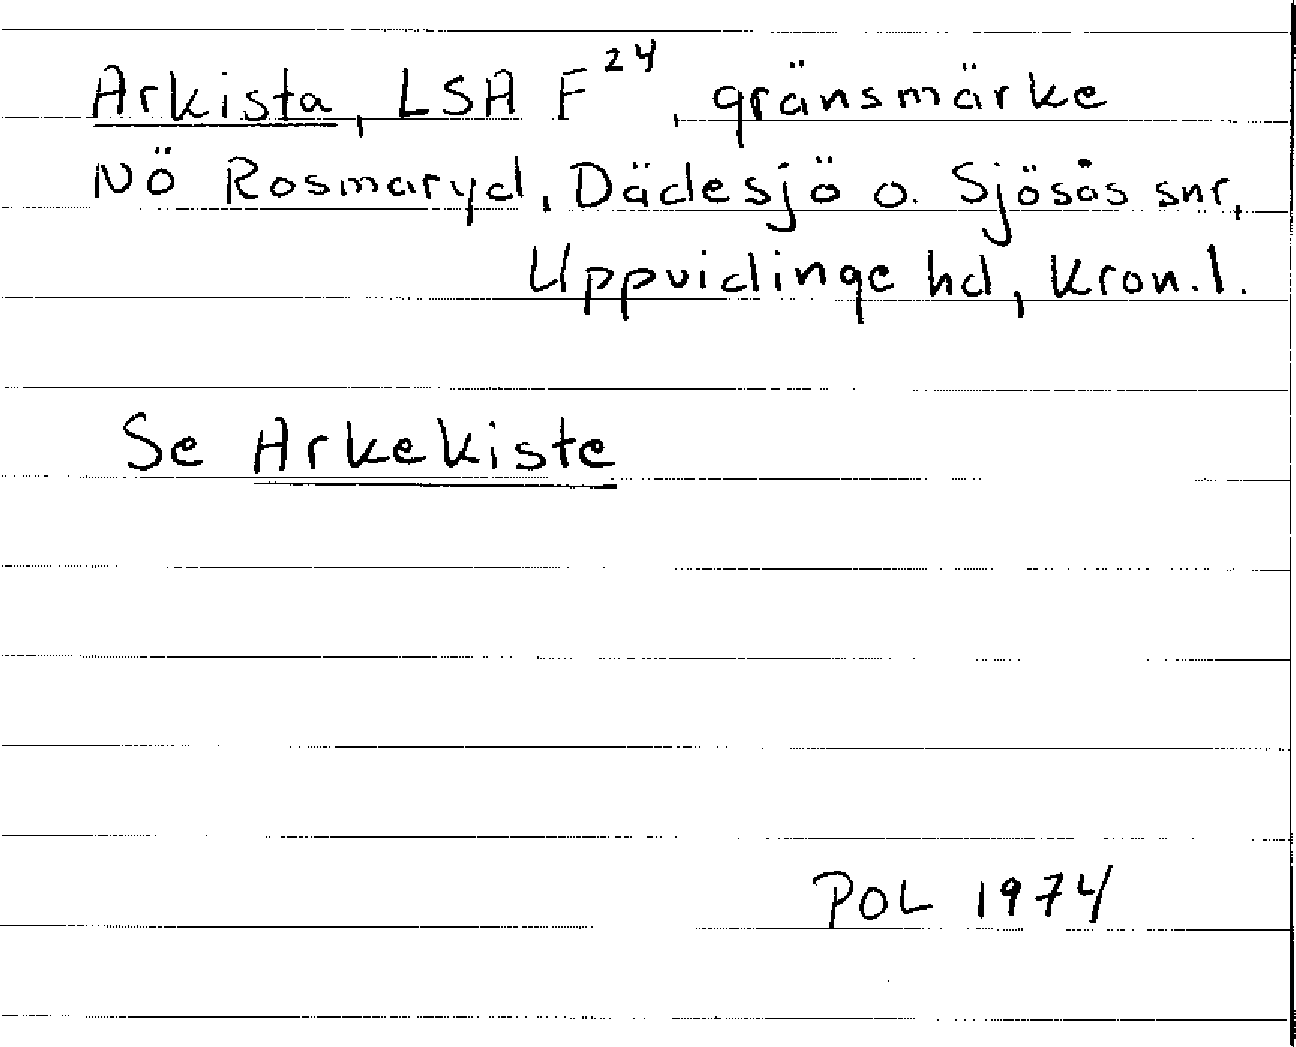 Arkista, LSA F²⁴, gränsmärke
NÖ Rosmaryd, Dädesjö o. Sjösås snr,
Uppvidinge hd, Kron. l.
Se Arkekiste
POL 1974